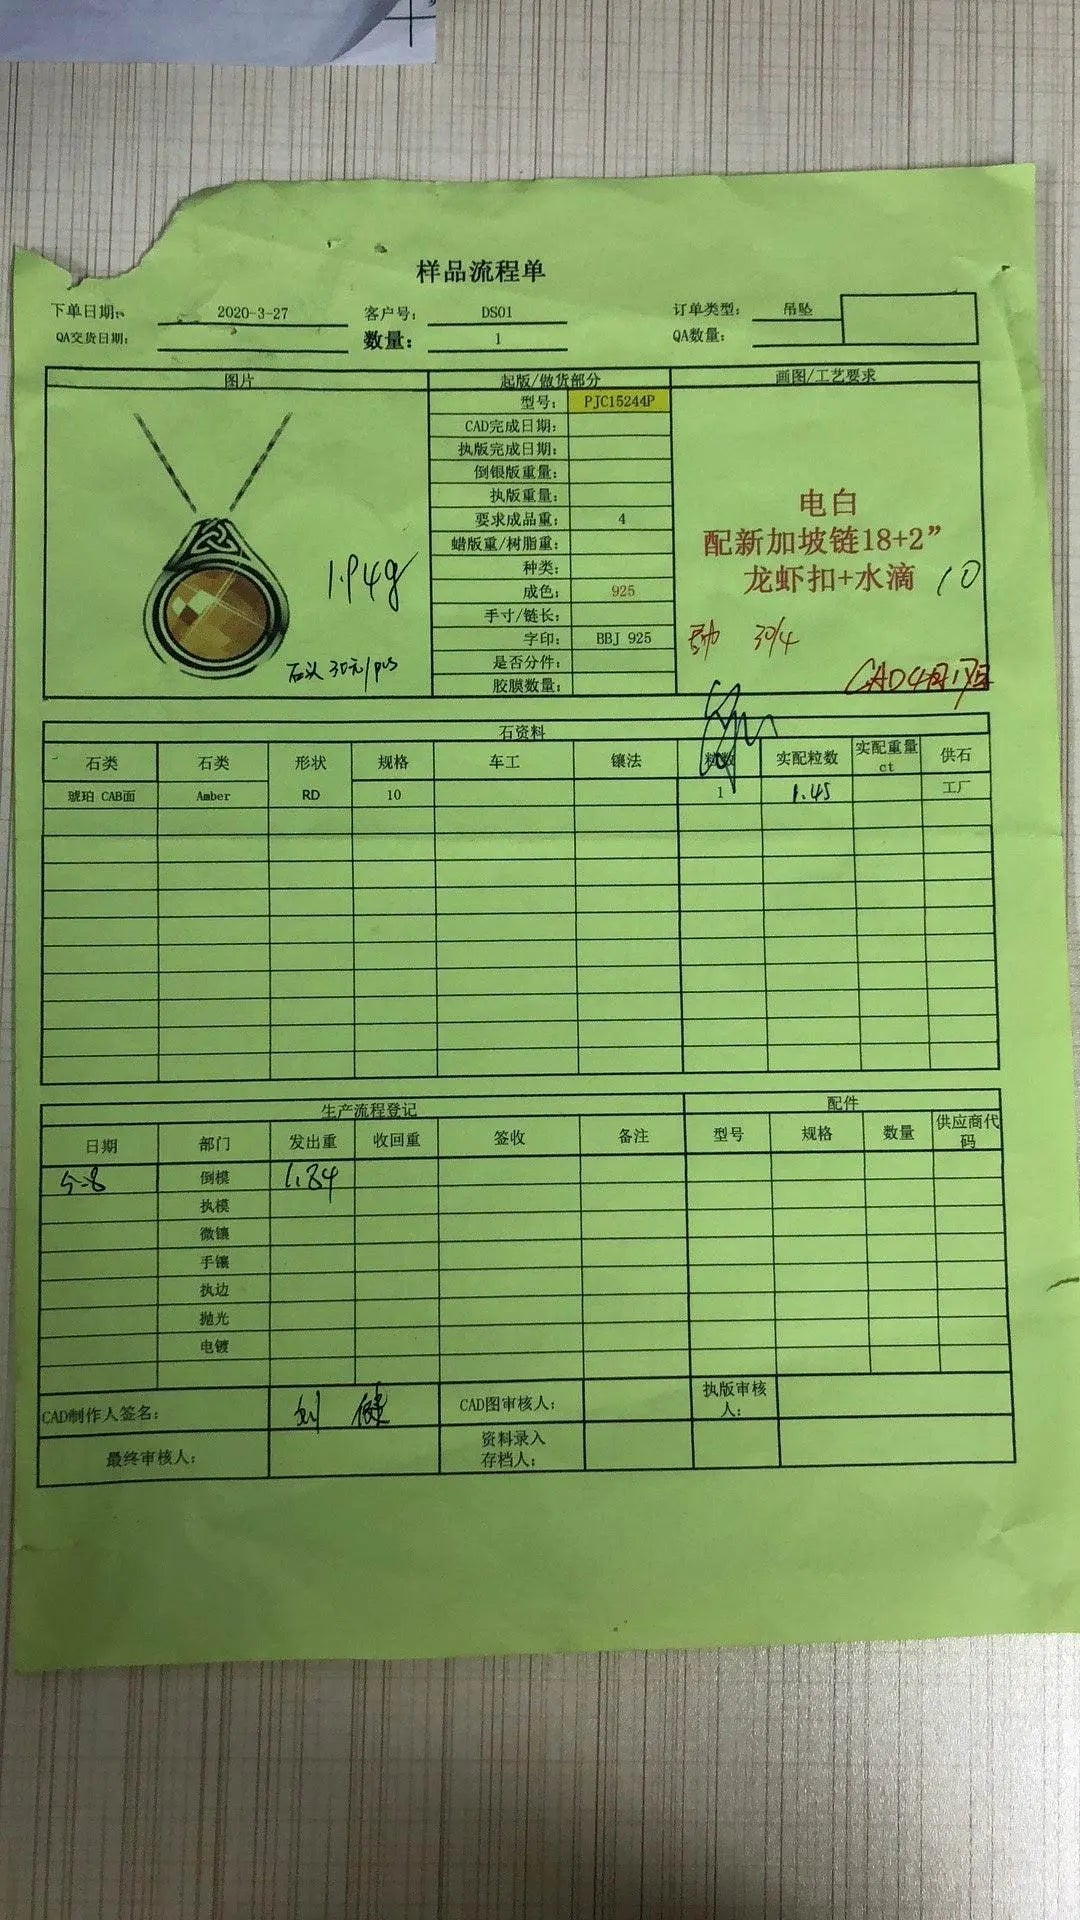 样品流程单
下单日期: 2020-3-27 客户号: DS01 订单类型: 吊坠
QA交货日期: 数量: 1 QA数量:
图片 起版/做货部分 画图/工艺要求
型号: PJC15244P
CAD完成日期:
执版完成日期:
倒银版重量:
执版重量:
要求成品重: 4
蜡版重/树脂重:
种类:
成色: 925
手寸/链长:
字印: BBJ 925
是否分件:
胶膜数量:
1.94g
石头 30元/pcs
电白
配新加坡链18+2”
龙虾扣+水滴 10
30/4
石资料
石类 石类 形状 规格 车工 镶法 粒数 实配粒数 实配重量ct 供石
琥珀 CAB面 Amber RD 10 1 1.45 工厂
生产流程登记 配件
日期 部门 发出重 收回重 签收 备注 型号 规格 数量 供应商代码
5-8 倒模 1.84
执模
微镶
手镶
执边
抛光
电镀
CAD制作人签名: CAD图审核人: 执版审核人:
最终审核人: 资料录入存档人: